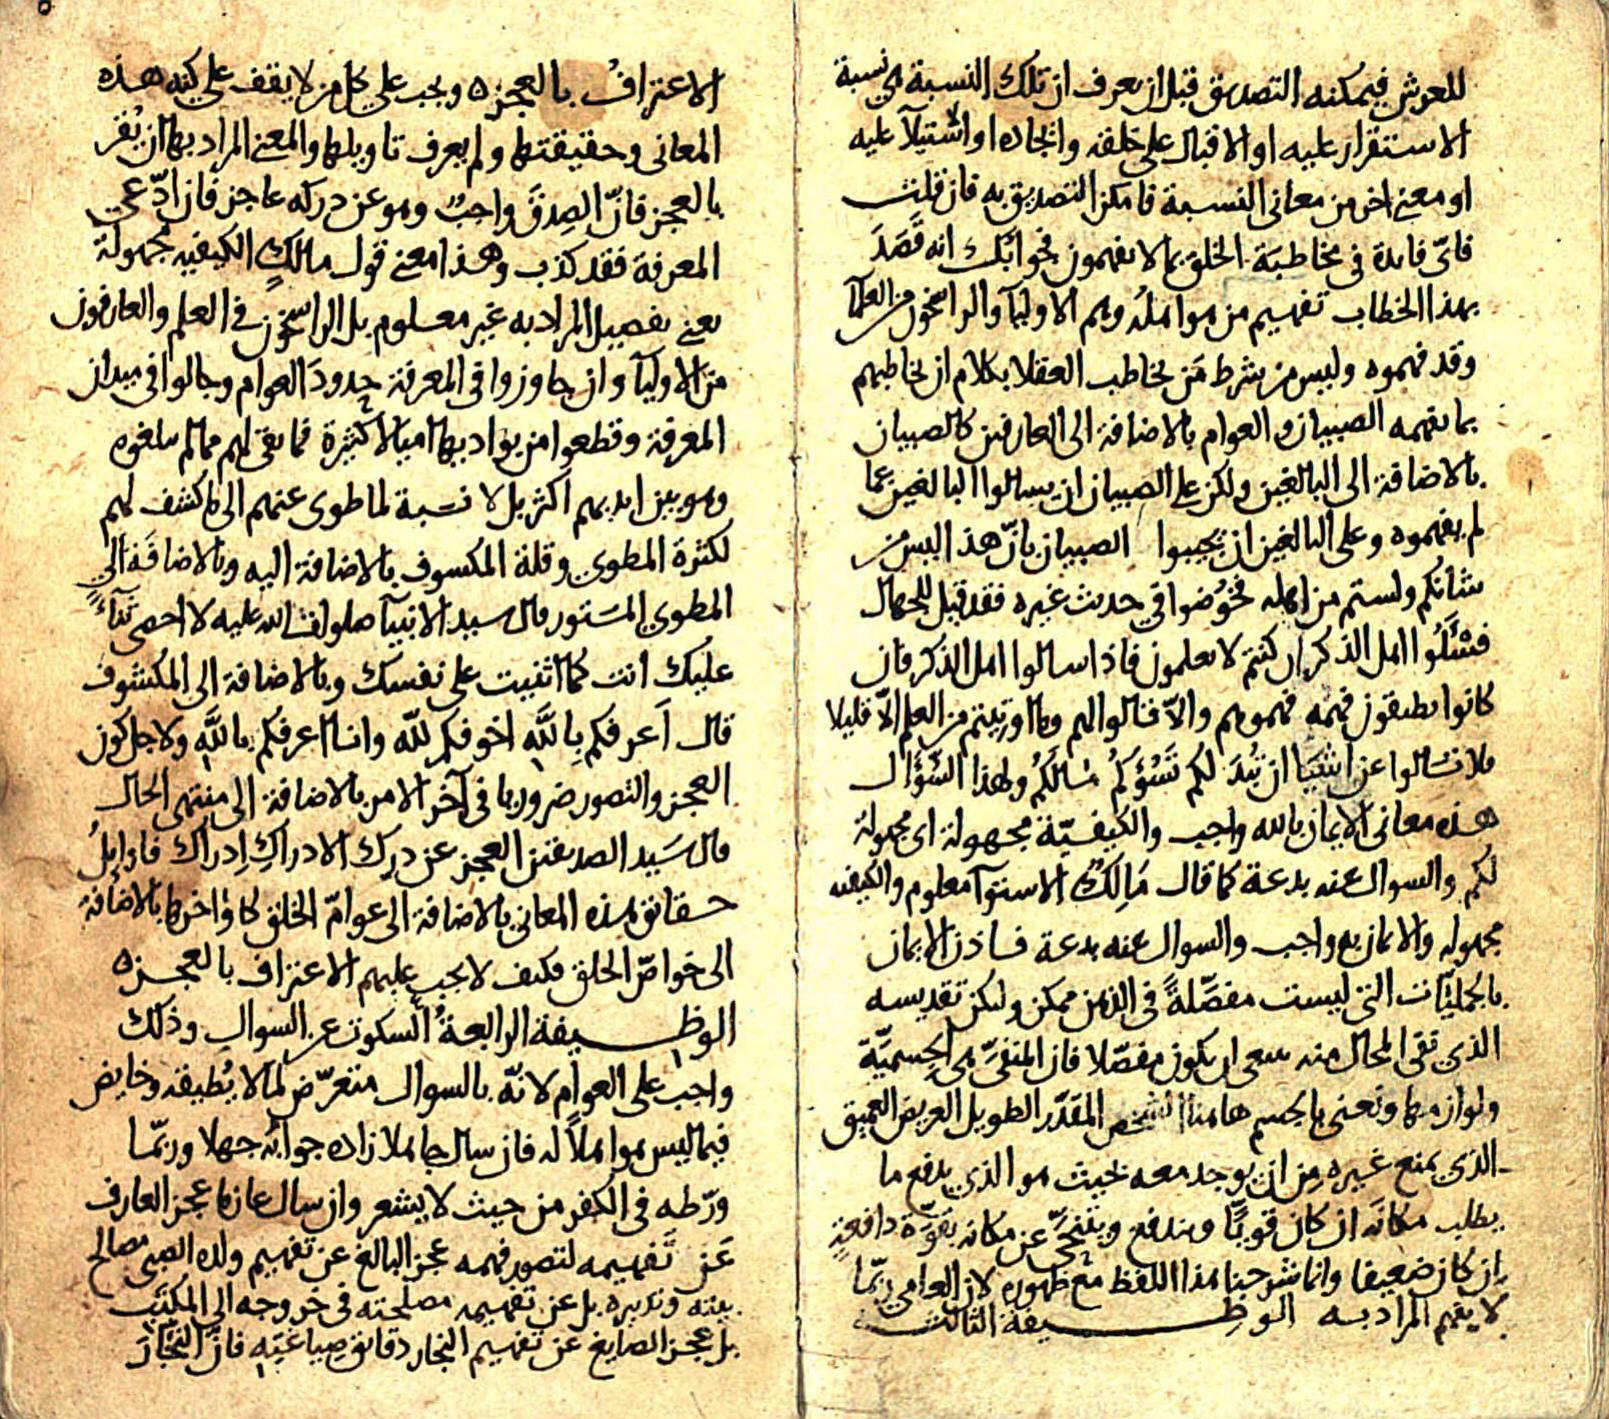 للعرش فيمكنه التصديق قبل ان يعرف ان تلك النسبة هي نسبة
الاستقرار عليه او الاقبال على خلقه وايجاده او اشتيلآ عليه
او معنى اخر من معانى النسبة فامكن التصديق به فان قلت
فاىّ فايدة فى مخاطبَة الخلق بما لا يفهمون فجوابُك انه قَصَدَ
بهذا الخطاب تفهيم من هو اهلُه وهم الاوليآ والراسخون من العلمآ
وقد فهموه وليس من شرط مَن يخاطب العقلا بكلام ان يخاطبهم
بما يفهمه الصبيان والعوام بالاضافة الى العارفين كالصبيان
بالاضافة الى البالغين ولكن على الصبيان ان يسالوا البالغين عما
لم يفهموه وعلى البالغين ان يجيبوا الصبيان بانّ هذا ليس من
شانكم ولستم من اهله فخُوضوا في حديث غيره فقد قيل للجهال
فسْئَلُوا اهل الذكر ان كنتم لا يعلمون فاذا سالوا اهل الذكر فان
كانوا يطيقون فهمه فهموهم والاّ قالوا لهم وما اوتيتم من العلم الاّ قليلا
فلا تسالوا عن اشيَا ان تُبدَ لكم تَسُؤكُم مالَكُم ولهذا السُّؤال
هذه معانى الايمان بالله واجب والكيفيّة مجهولة اى مجهولة
لكم والسوال عنه بدعة كما قال مَالِكٌ الاستوآ معلوم والكيفيه
مجهوله والايمان به واجب والسوال عنه بدعة فاذن الايمان
بالجُمليّات التى ليست مفصَّلةً فى الذهن ممكن ولكن تقديسه
الذى نفى المحال منه ينبغى ان يكون مفصّلا فان المنفىَّ هى الجسميَّة
ولوازمها ونعنى بالجسم هاهنا الشخص المقدّر الطويل العريض العميق
الذى يمنع غيره مِن ان يوجد معه بحيث هو الذى يدفع ما
يطلب مكانَه ان كان قويًّا ويندفع ويتنحّى عن مكانه بقوّة دافعةٍ
ان كان ضعيفا وانما شرحنا هذا اللفظ مع ظهوره لان العامى ربّما
لا يفهم المراد به الوظِيفة الثالثة
الاعترافُ بالعجز ه ويجب على كل من لا يقف على كنه هذه
المعانى وحقيقتها ولم يعرف تاويلها والمعنى المراد بها ان يُقرّ
بالعجز فانّ الصِدقَ واجبٌ وهو عن دركه عاجز فان ادّعى
المعرفة فقد كذب وهذا معنى قول مالكٍ الكيفيه مجهولة
يعنى تفصيل المراد به غير معلوم بل الراسخون فى العلم والعارفون
من الاوليآ وان جاوزوا فى المعرفة حدودَ العوام وجالوا فى ميدان
المعرفة وقطعوا من بواديها اميالا كثيرة فما بقى لهم مما لم يبلغوه
وهو بين ايديهم اكثر بل لا نسَبة لما طوى عنهم الى ما كشف لهم
لكثرة المطوى وقلة المكسوف بالاضافة اليه وبالاضافَة الى
المطوى المسَتور قال سيد الانبيآ صلوات الله عليه لا احصى ثنآءً
عليك انت كما اثنيت على نفسك وبالاضافة الى المكشوف
قال اَعرفكم بِاللَّه اخوفكم للّه وانا اعرفكم باللَّه ولاجل كون
العجز والتصور ضروريا فى آخر الامر بالاضافة الى منتهى الحال
قال سَيد الصديقين العجز عن درك الادراكِ اِدراك فاوايلُ
حقايق هذه المعانى بالاضافة الى عوامّ الخلق كاواخرها بالاضافة
الى خواصّ الخلق فكيف لا يجب عليهم الاعتراف بالعجز ه
الوظيفة الرابعةُ السكوت عن السوالِ وذلك
واجب على العوام لانّه بالسوال متعرّض لما لا يُطيقه وخايض
فيما ليس هو اهلاً له فان سال جاهلا زاده جوابُه جهلا وربّما
ورّطه فى الكفر من حيث لا يشعر وان سال عارفا عجز العارف
عَن تَفهيمه لتصور فهمه عجز البالغ عن تفهيم ولده الصبى مصالح
بيته وتدبيره بل عن تفهيمه مصلحته فى خروجه الى المكتَب
بل عجز الصايغ عن تفهيم النجار دقائق صِياغيّه فانّ النّجّار